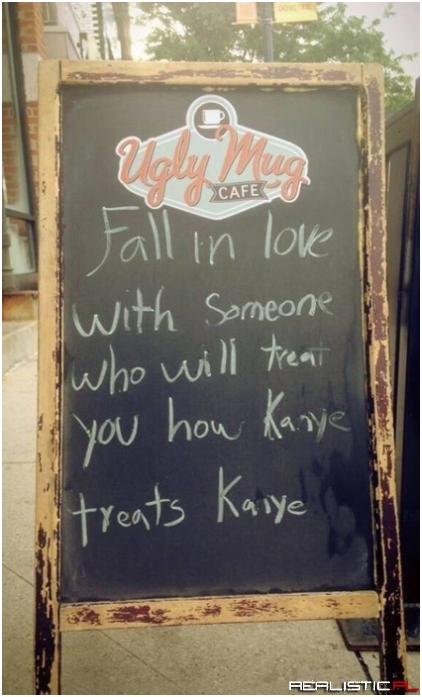 Ugly Mug
CAFE
Fall in love
with someone
who will treat
you how Kanye
treats Kanye
REALISTIC.PL